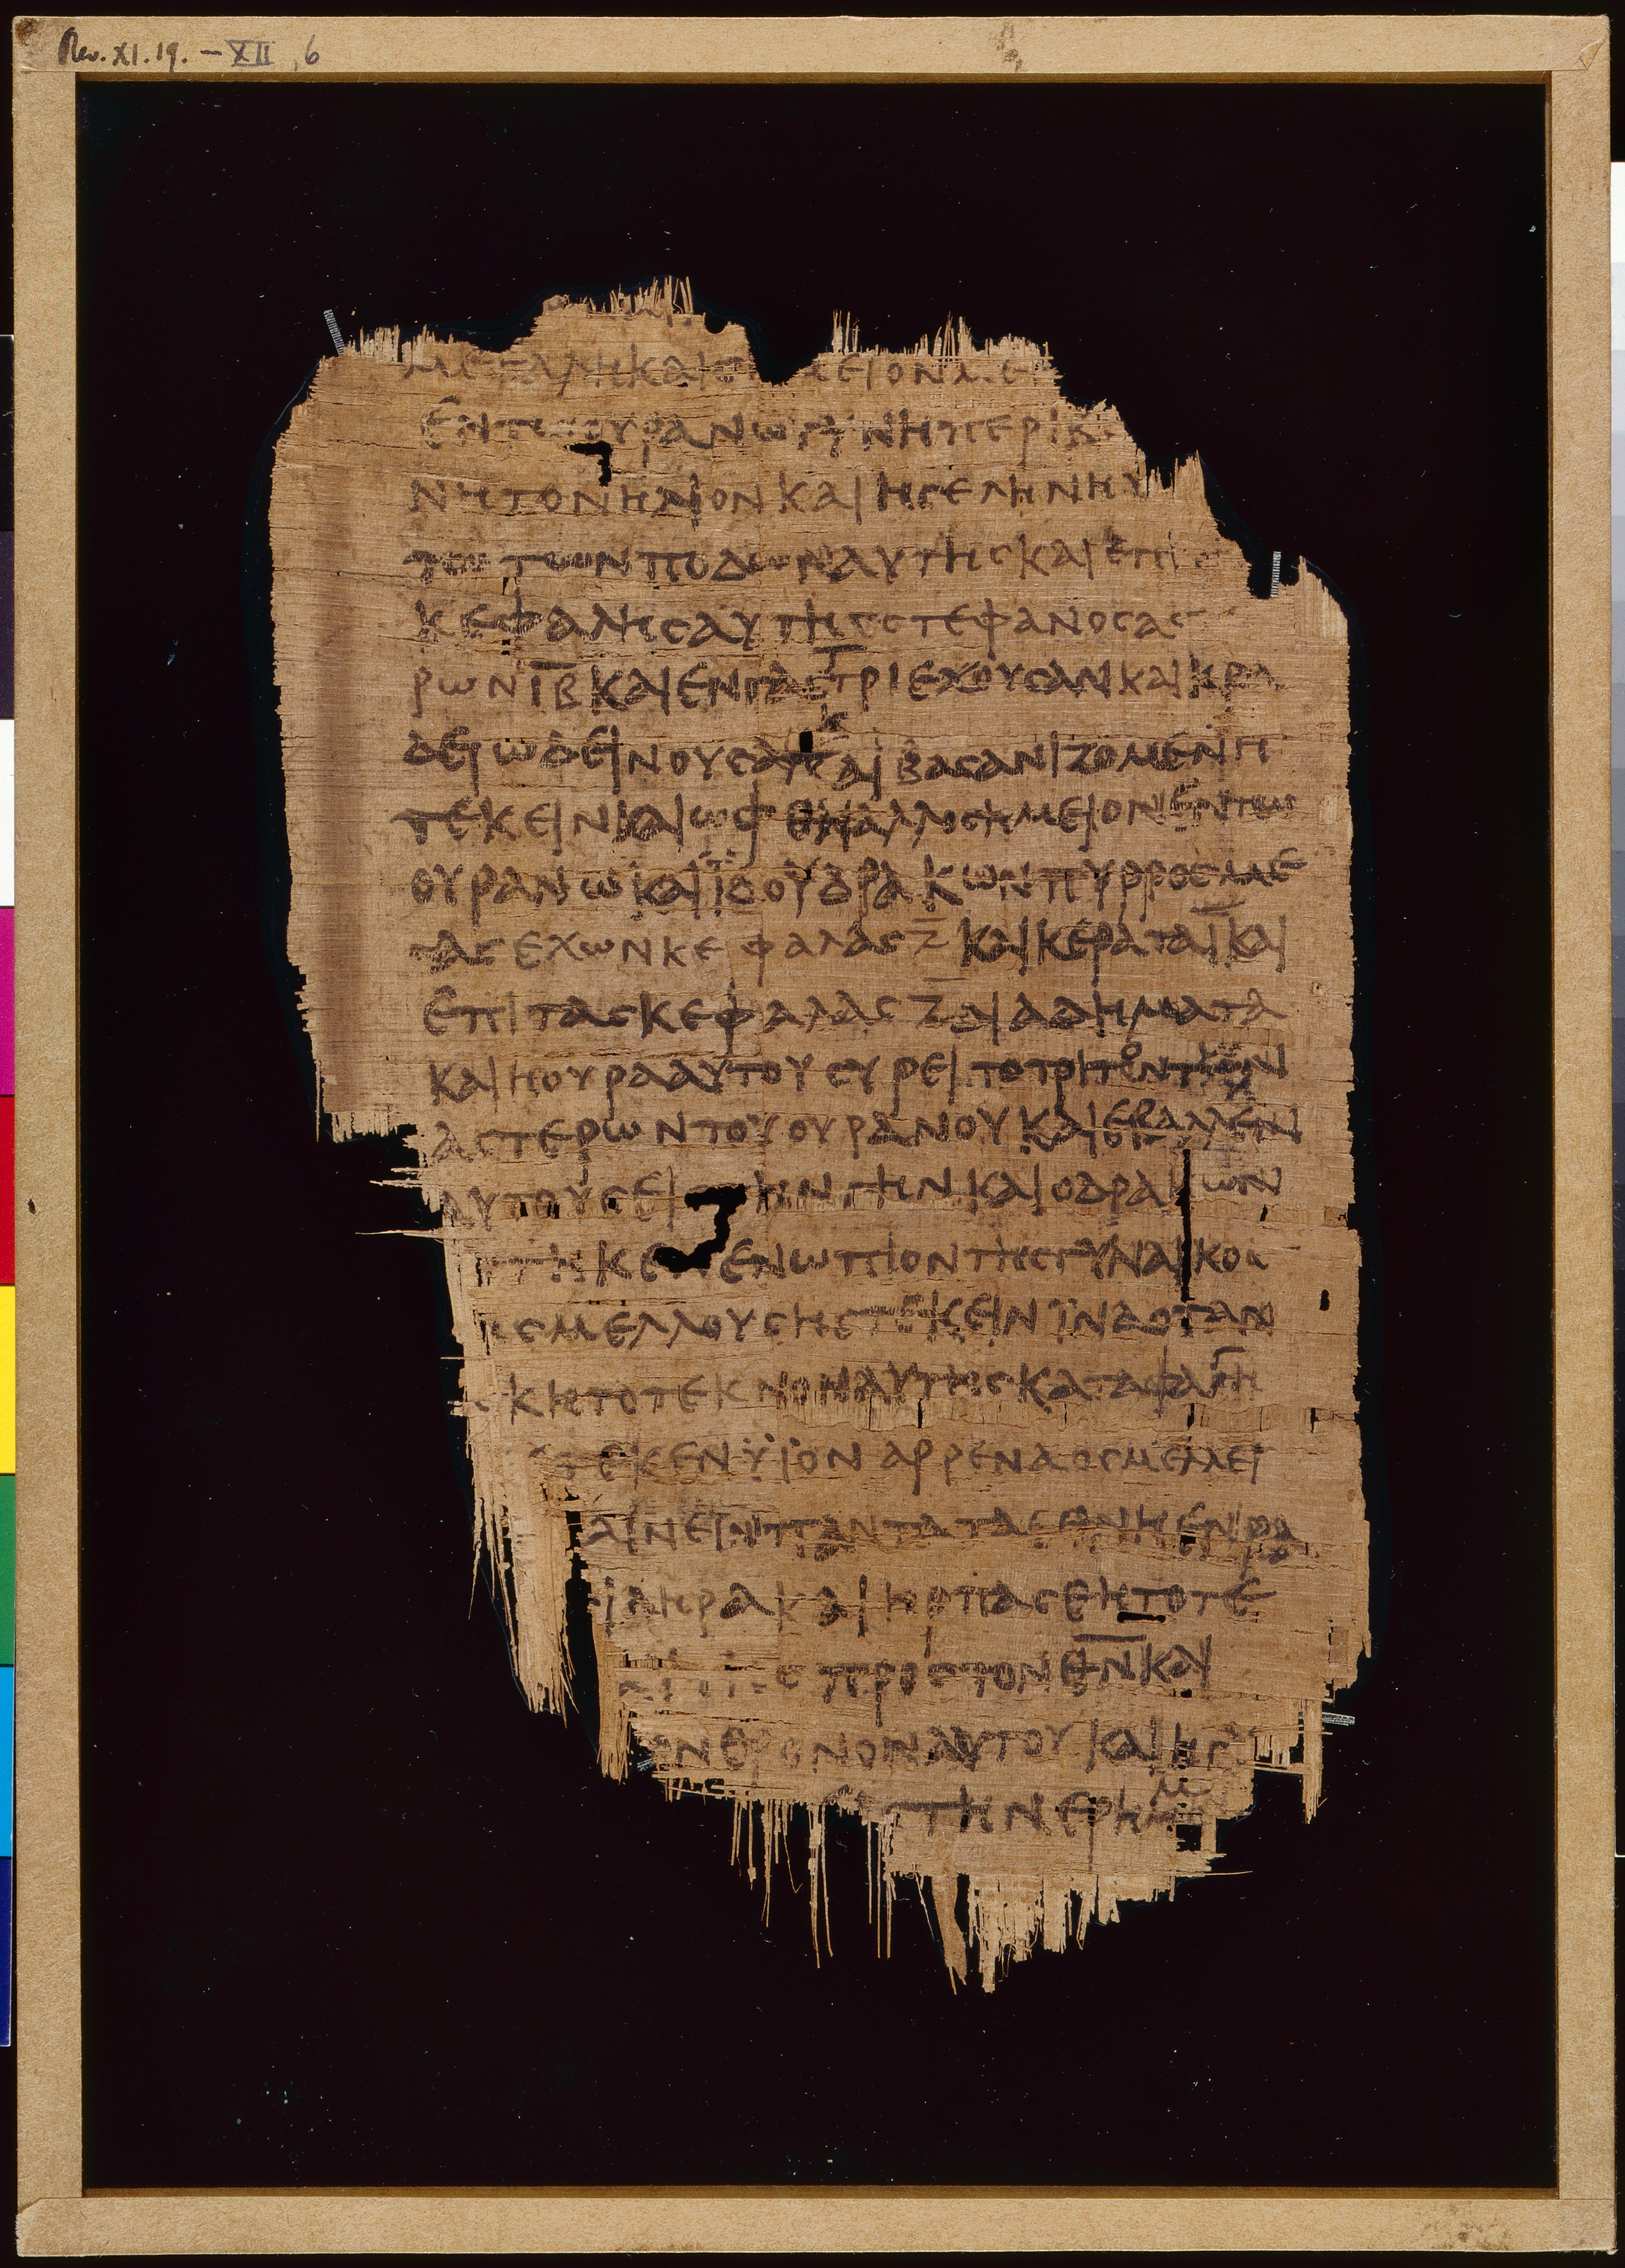 Rev. XI. 19. – XII, 6
ΜΕΓΑΛΗ ΚΑΙ ΕΙΟΝ
ΕΝ ΤΩ ΟΥΡΑΝΩ ΓΥΝΗ ΠΕΡΙΒ
ΝΗ ΤΟΝ ΗΛΙΟΝ ΚΑΙ Η ΣΕΛΗΝΗ Υ
ΤΩ ΤΩΝ ΠΟΔΩΝ ΑΥΤΗΣ ΚΑΙ ΕΠΙ
ΚΕΦΑΛΗΣ ΑΥΤΗΣ ΣΤΕΦΑΝΟΣ ΑΣ
ΡΩΝ Ι̅Β̅ ΚΑΙ ΕΝ ΓΑΣΤΡΙ ΕΧΟΥΣΑΝ ΚΑΙ ΚΡΑ
ΔΕΙ ΩΔΕΙΝΟΥΣΑ ΚΑΙ ΒΑΣΑΝΙΖΟΜΕΝΗ
ΤΕΚΕΙΝ ΚΑΙ ΩΦΘΗ ΑΛΛΟ ΣΗΜΕΙΟΝ ΕΝ ΤΩ
ΟΥΡΑΝΩ ΚΑΙ ΙΔΟΥ ΔΡΑΚΩΝ ΠΥΡΡΟΣ ΜΕ
ΓΑΣ ΕΧΩΝ ΚΕΦΑΛΑΣ Ζ̅ ΚΑΙ ΚΕΡΑΤΑ Ι̅ ΚΑΙ
ΕΠΙ ΤΑΣ ΚΕΦΑΛΑΣ Ζ̅ ΔΙΑΔΗΜΑΤΑ
ΚΑΙ Η ΟΥΡΑ ΑΥΤΟΥ ΣΥΡΕΙ ΤΟ ΤΡΙΤΟΝ ΤΩΝ
ΑΣΤΕΡΩΝ ΤΟΥ ΟΥΡΑΝΟΥ ΚΑΙ ΕΒΑΛΛΕΝ
ΑΥΤΟΥΣ ΕΙ ΤΗΝ ΓΗΝ ΚΑΙ Ο ΔΡΑΚΩΝ
ΤΗΚΕ ΕΝΩΠΙΟΝ ΤΗΣ ΓΥΝΑΙΚΟΣ
Σ ΜΕΛΛΟΥΣΗΣ ΤΕΚΕΙΝ ΙΝΑ ΟΤΑΝ
ΚΗ ΤΟ ΤΕΚΝΟΝ ΑΥΤΗΣ ΚΑΤΑΦΑΓΗ
ΤΕΚΕΝ ΫΙΟΝ ΑΡΡΕΝΑ ΟΣ ΜΕΛΛΕΙ
ΑΙΝΕΙΝ ΠΑΝΤΑ ΤΑ ΕΘΝΗ ΕΝ ΡΑ
ΙΔΗΡΑ ΚΑΙ ΗΡΠΑΣΘΗ ΤΟ ΤΕ
Σ ΠΡΟΣ ΤΟΝ Θ̅Ν̅ ΚΑΙ
ΟΝ ΘΡΟΝΟΝ ΑΥΤΟΥ ΚΑΙ Η Γ
ΤΗΝ ΕΡΗΜ